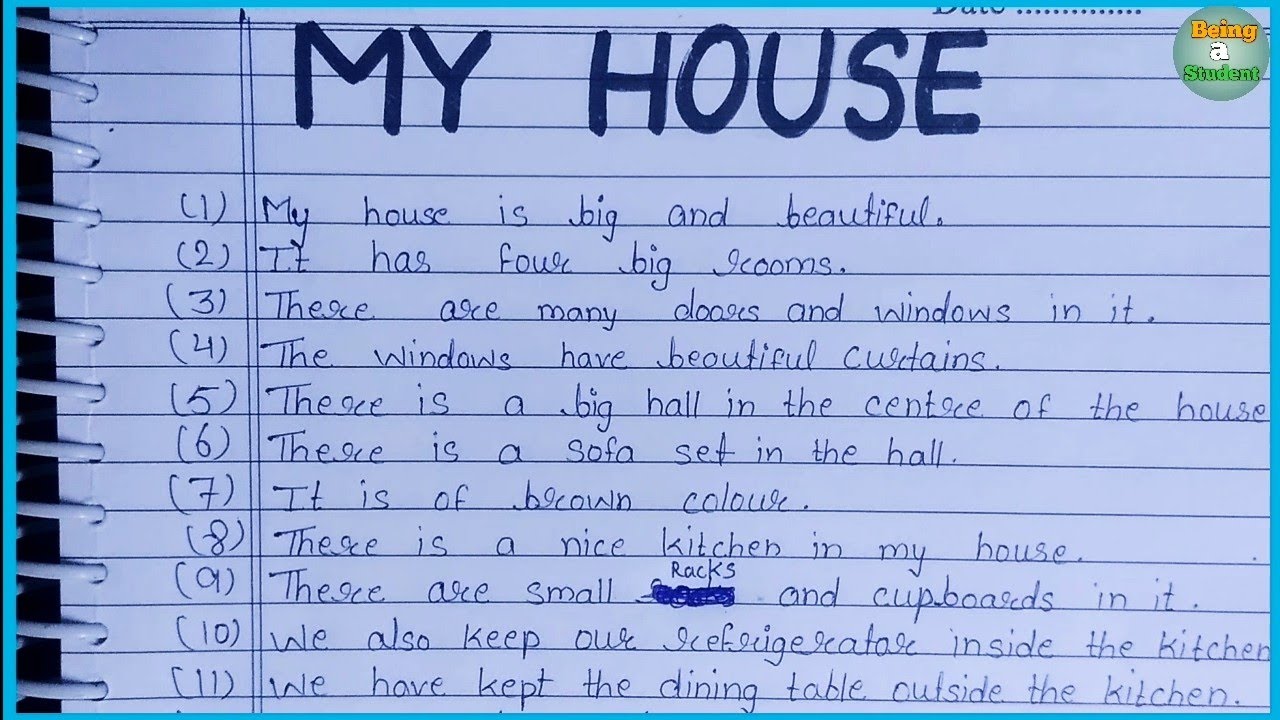 Date ..............
Being
a
Student
MY HOUSE
(1) My house is big and beautiful.
(2) It has four big rooms.
(3) There are many doors and windows in it.
(4) The windows have beautiful curtains.
(5) There is a big hall in the centre of the house
(6) There is a sofa set in the hall.
(7) It is of brown colour.
(8) There is a nice kitchen in my house.
(9) There are small Racks and cupboards in it.
(10) We also keep our refrigerator inside the kitchen
(11) We have kept the dining table outside the kitchen.